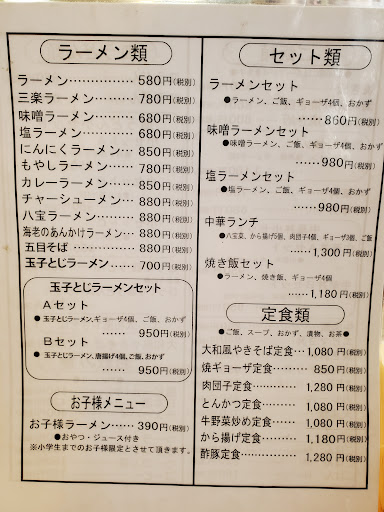 ラーメン類
ラーメン…………… 580円(税別)
三楽ラーメン……… 780円(税別)
味噌ラーメン……… 680円(税別)
塩ラーメン………… 680円(税別)
にんにくラーメン… 850円(税別)
もやしラーメン…… 780円(税別)
カレーラーメン…… 850円(税別)
チャーシューメン… 880円(税別)
八宝ラーメン……… 880円(税別)
海老のあんかけラーメン… 880円(税別)
五目そば…………… 880円(税別)
玉子とじラーメン… 700円(税別)
玉子とじラーメンセット
Aセット
●玉子とじラーメン、ギョーザ4個、ご飯、おかず
…… 950円(税別)
Bセット
●玉子とじラーメン、唐揚げ4個、ご飯、おかず
…… 950円(税別)
お子様メニュー
お子様ラーメン…… 390円(税別)
●おやつ・ジュース付き
※小学生までのお子様限定とさせて頂きます。
セット類
ラーメンセット
●ラーメン、ご飯、ギョーザ4個、おかず
…… 860円(税別)
味噌ラーメンセット
●味噌ラーメン、ご飯、ギョーザ4個、おかず
…… 980円(税別)
塩ラーメンセット
●塩ラーメン、ご飯、ギョーザ4個、おかず
…… 980円(税別)
中華ランチ
●八宝菜、から揚げ5個、肉団子4個、ギョーザ3個、ご飯
…… 1,300円(税別)
焼き飯セット
●ラーメン、焼き飯、ギョーザ4個
…… 1,180円(税別)
定食類
●ご飯、スープ、おかず、漬物、お茶●
大和風やきそば定食… 1,080円(税別)
焼ギョーザ定食……… 850円(税別)
肉団子定食………… 1,280円(税別)
とんかつ定食……… 1,080円(税別)
牛野菜炒め定食…… 1,080円(税別)
から揚げ定食……… 1,180円(税別)
酢豚定食…………… 1,280円(税別)